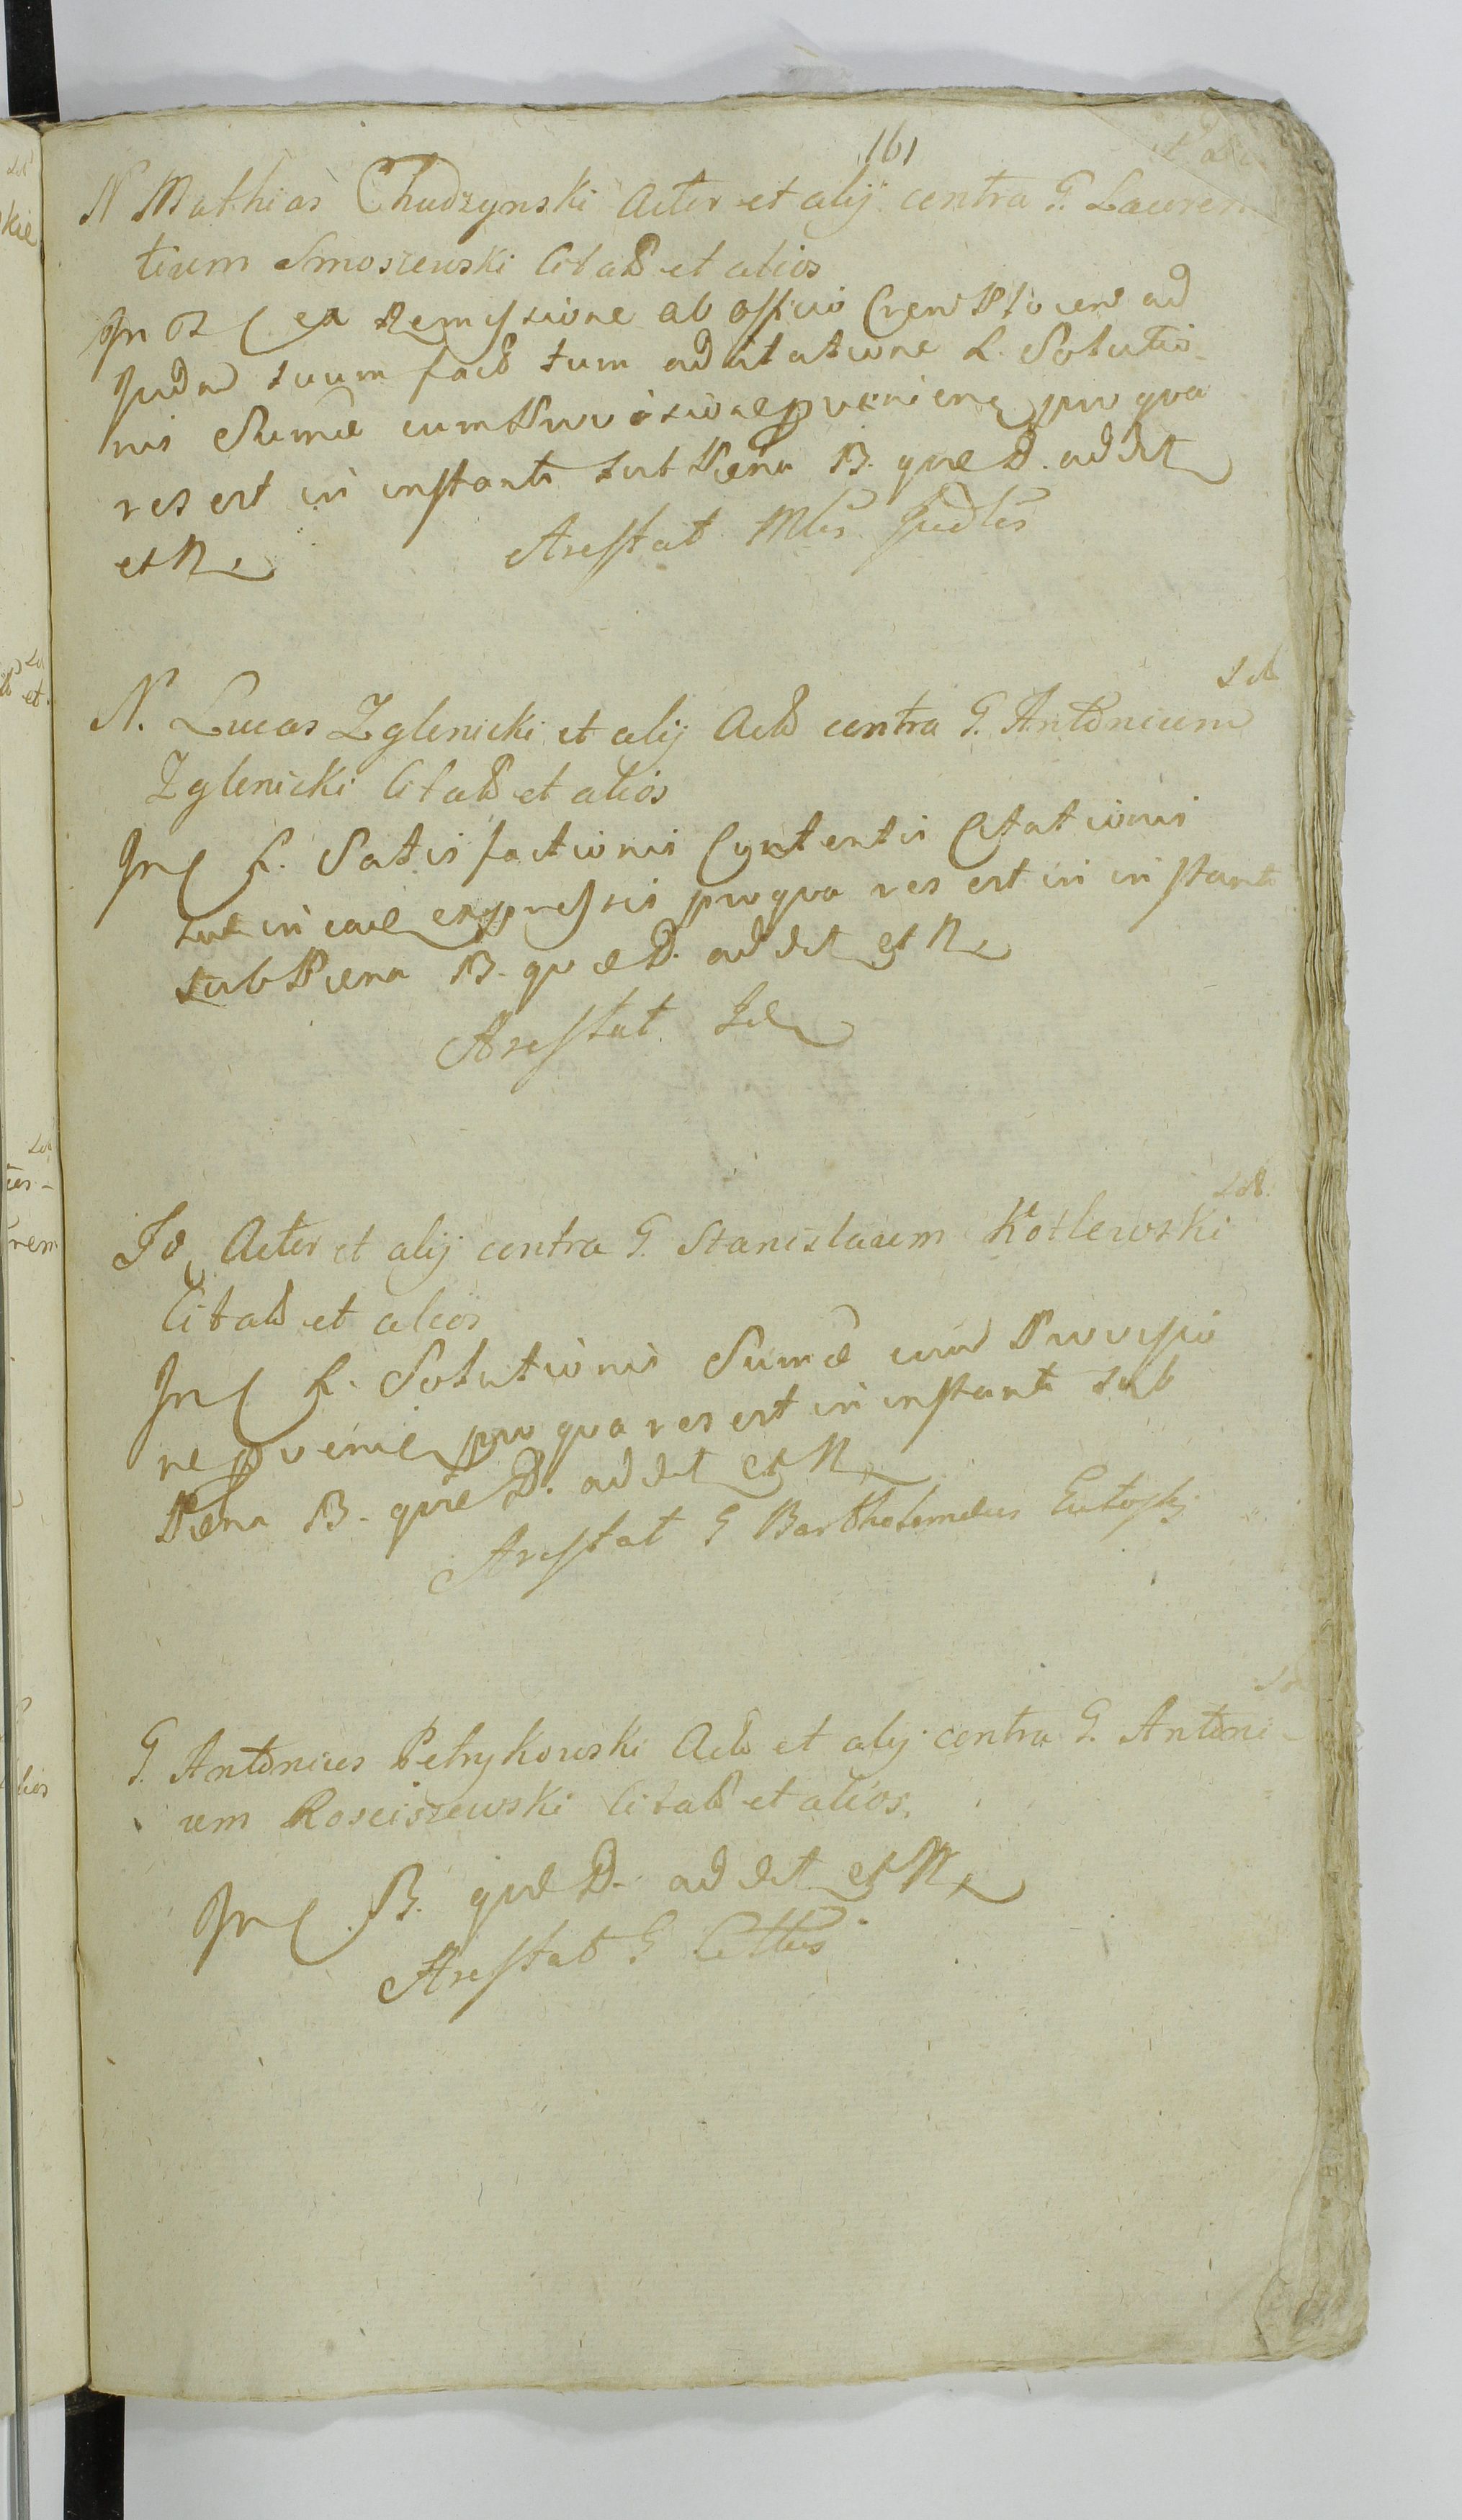 161
N Mathias Chudzynski Actor et alij contra G. Lauren
tium Smoszewski Citatũ et alios
In ex Remissione ab officio Cren Plocen ad
Judm suum fact tum ad citatione L. Solutio-
nis Sumæ cum Provisione proveniene pro qua
res est in instanti sub Pæna B. quæ D. addet
et N
Arestat Mlis Judlis
N. Lucas Zglenicki et alij Act contra G. Antonium
Zglenicki Citat et alios
In L. Satisfactionis Contentis Citationis
suæ in eaq expressis pro qua res est in instanti
sub Pæna B. quæ D. addet et N
Arestat Id
Id Actor et alij contra G. Stanislaum Kotlewski
Citat et alios
In L. Solutionis Sumæ cum Provisio
ne provenie pro qua res est in instanti sub
Pæna B. quæ D. addet et N
Arestat G Bartholomeus
G. Antonius Petrykowski Act et alij contra G. Antoni-
um Rosciszewski Citat et alios.
In B. quæ D. addet et N
Arestat G